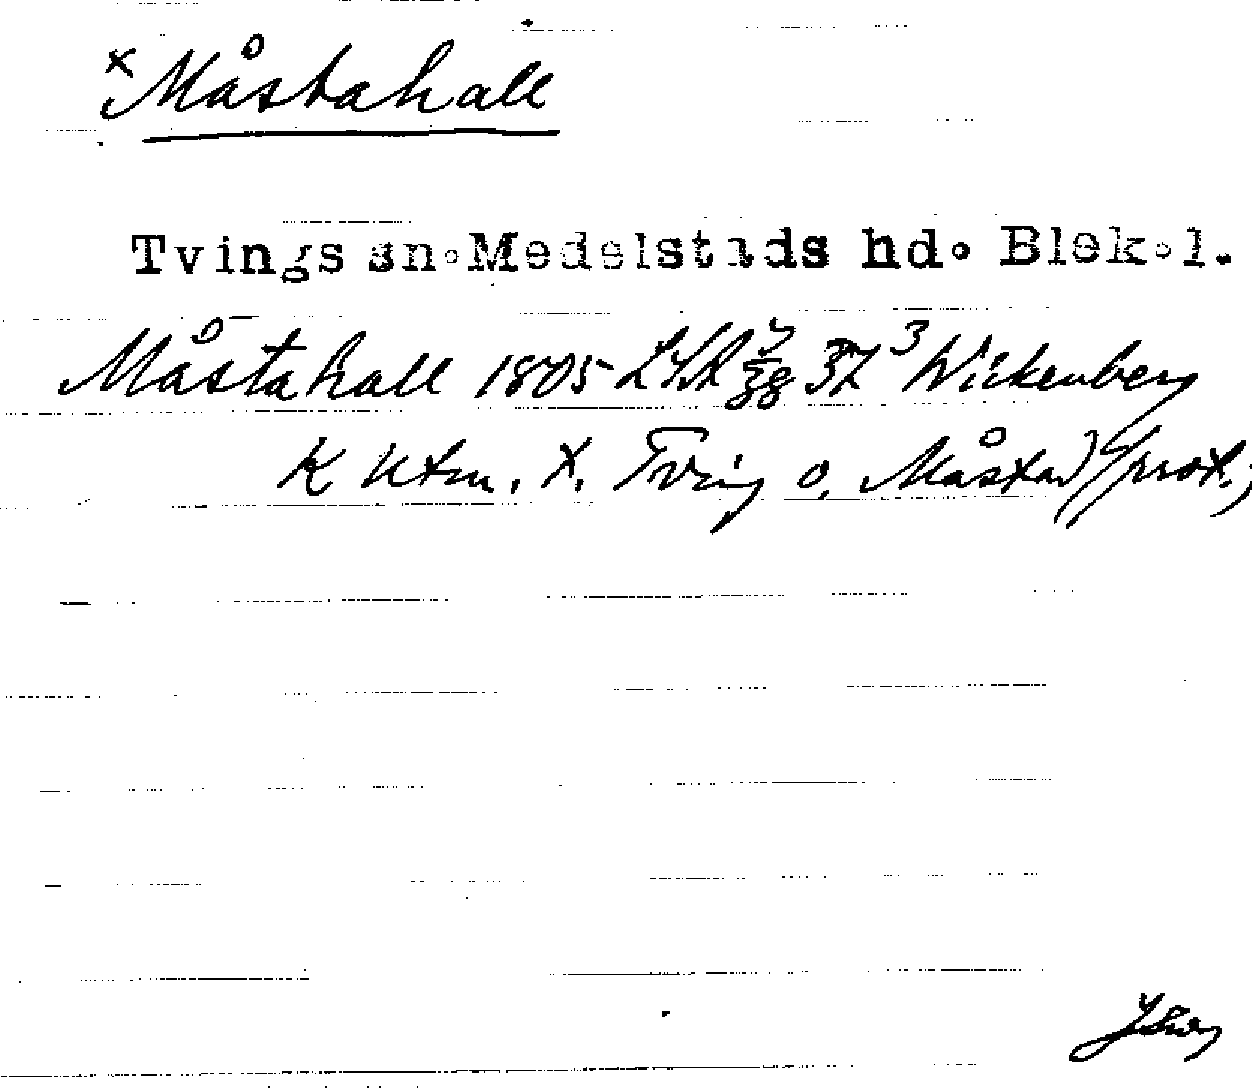 x Måstahall
Tvings sn. Medelstads hd. Blek.l.
Måstahall 1805 37 3 Wickenberg
K Utm. X. Tving o. Måstad (prot.)